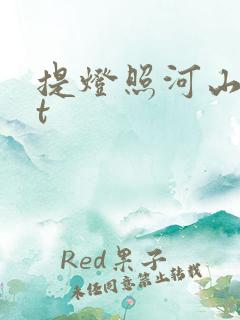 提燈照河山
t
Red果子
未经同意禁止转载